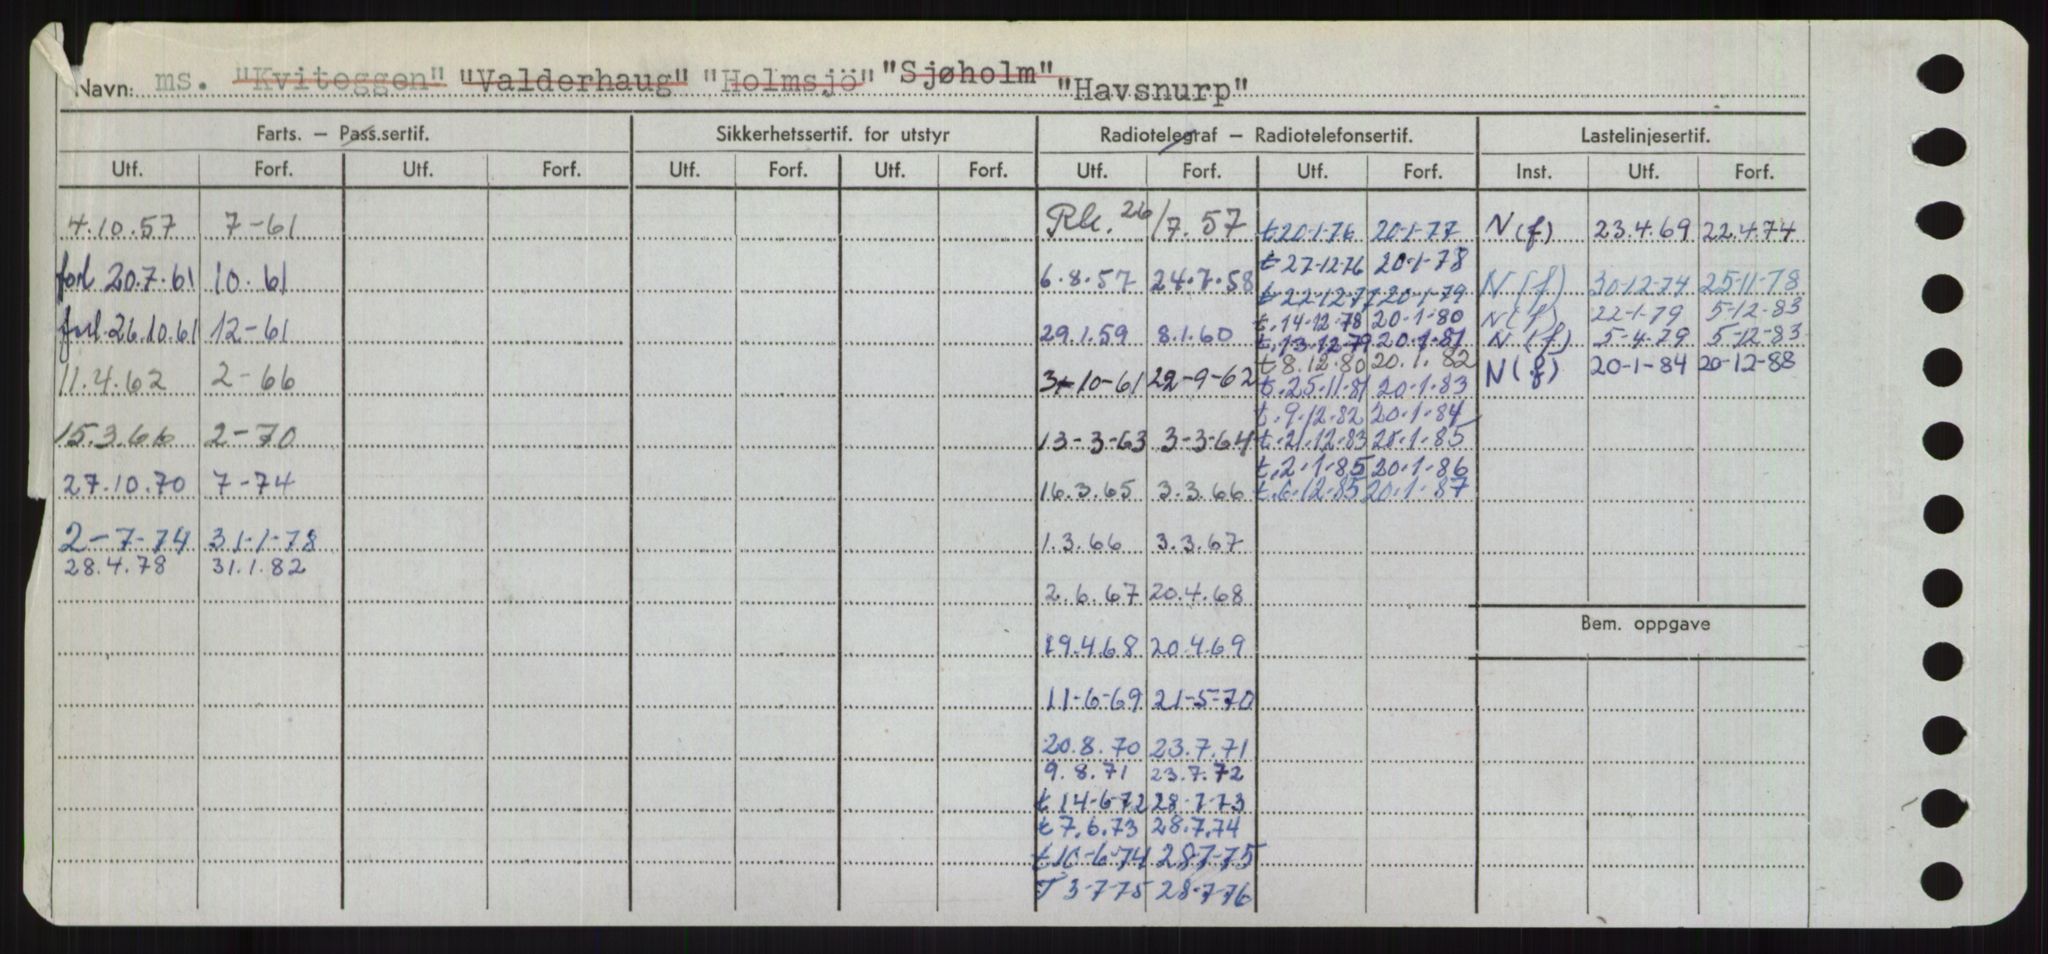 Navn: ms. "Kviteggen" "Valderhaug" "Holmsjö" "Sjøholm" "Havsnurp"
Farts. — Pass.sertif. Sikkerhetssertif. for utstyr Radiotelegraf — Radiotelefonsertif. Lastelinjesertif.
Utf. Forf. Utf. Forf. Utf. Forf. Utf. Forf. Utf. Forf. Utf. Forf. Inst. Utf. Forf.
4.10.57 7-61
forl 20.7.61 10.61
forl. 26.10.61 12-61
11.4.62 2-66
15.3.66 2-70
27.10.70 7-74
2-7-74 31-1-78
28.4.78 31.1.82
Rk. 26/7.57
6.8.57 24.7.58
29.1.59 8.1.60
3-10-61 22-9-62
13-3-63 3-3-64
16.3.65 3.3.66
1.3.66 3.3.67
2.6.67 20.4.68
19.4.68 20.4.69
11-6-69 21-5-70
20.8.70 23.7.71
9.8.71 23.7.72
t 14-6-72 28-7-73
t 7.6.73 28.7.74
t 10-6-74 28-7-75
T 3-7-75 28-7-76
t 20-1-76 20-1-77
t 27-12-76 20-1-78
t 22-12-77 20-1-79
t. 14-12-78 20-1-80
t. 13-12-79 20-1-81
t 8.12.80 20.1.82
t. 25.11.81 20.1.83
t. 9.12.82 20.1.84
t. 21.12.83 20.1.85
t. 2.1.85 20.1.86
t. 6.12.85 20.1.87
N(f) 23.4.69 22.4.74
N(f) 30-12-74 25-11-78
N(f) 22-1-79 5-12-83
N(f) 5-4-79 5-12-83
N(f) 20-1-84 20-12-88
Bem. oppgave